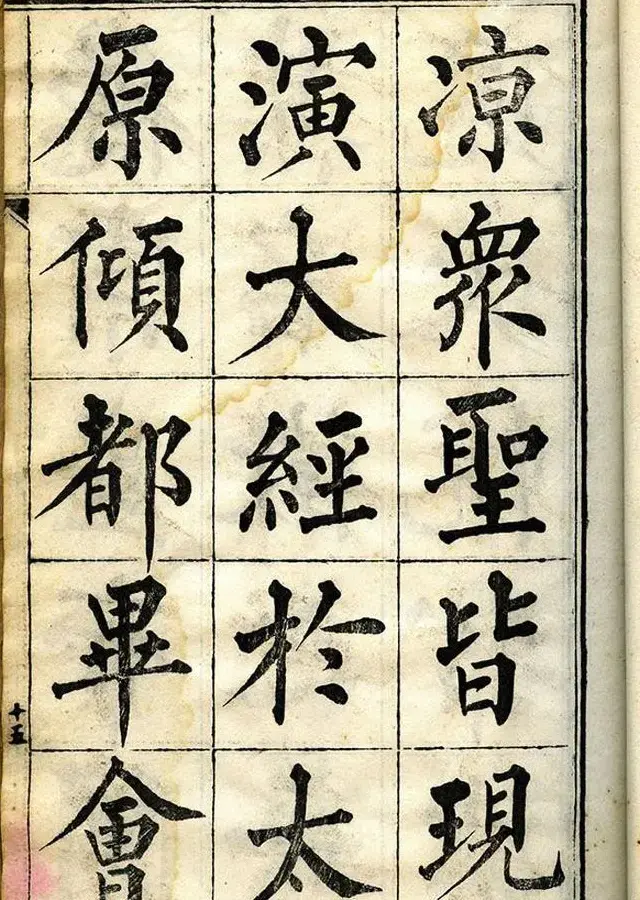 凉衆聖皆現
演大經於太
原傾都畢會
十五